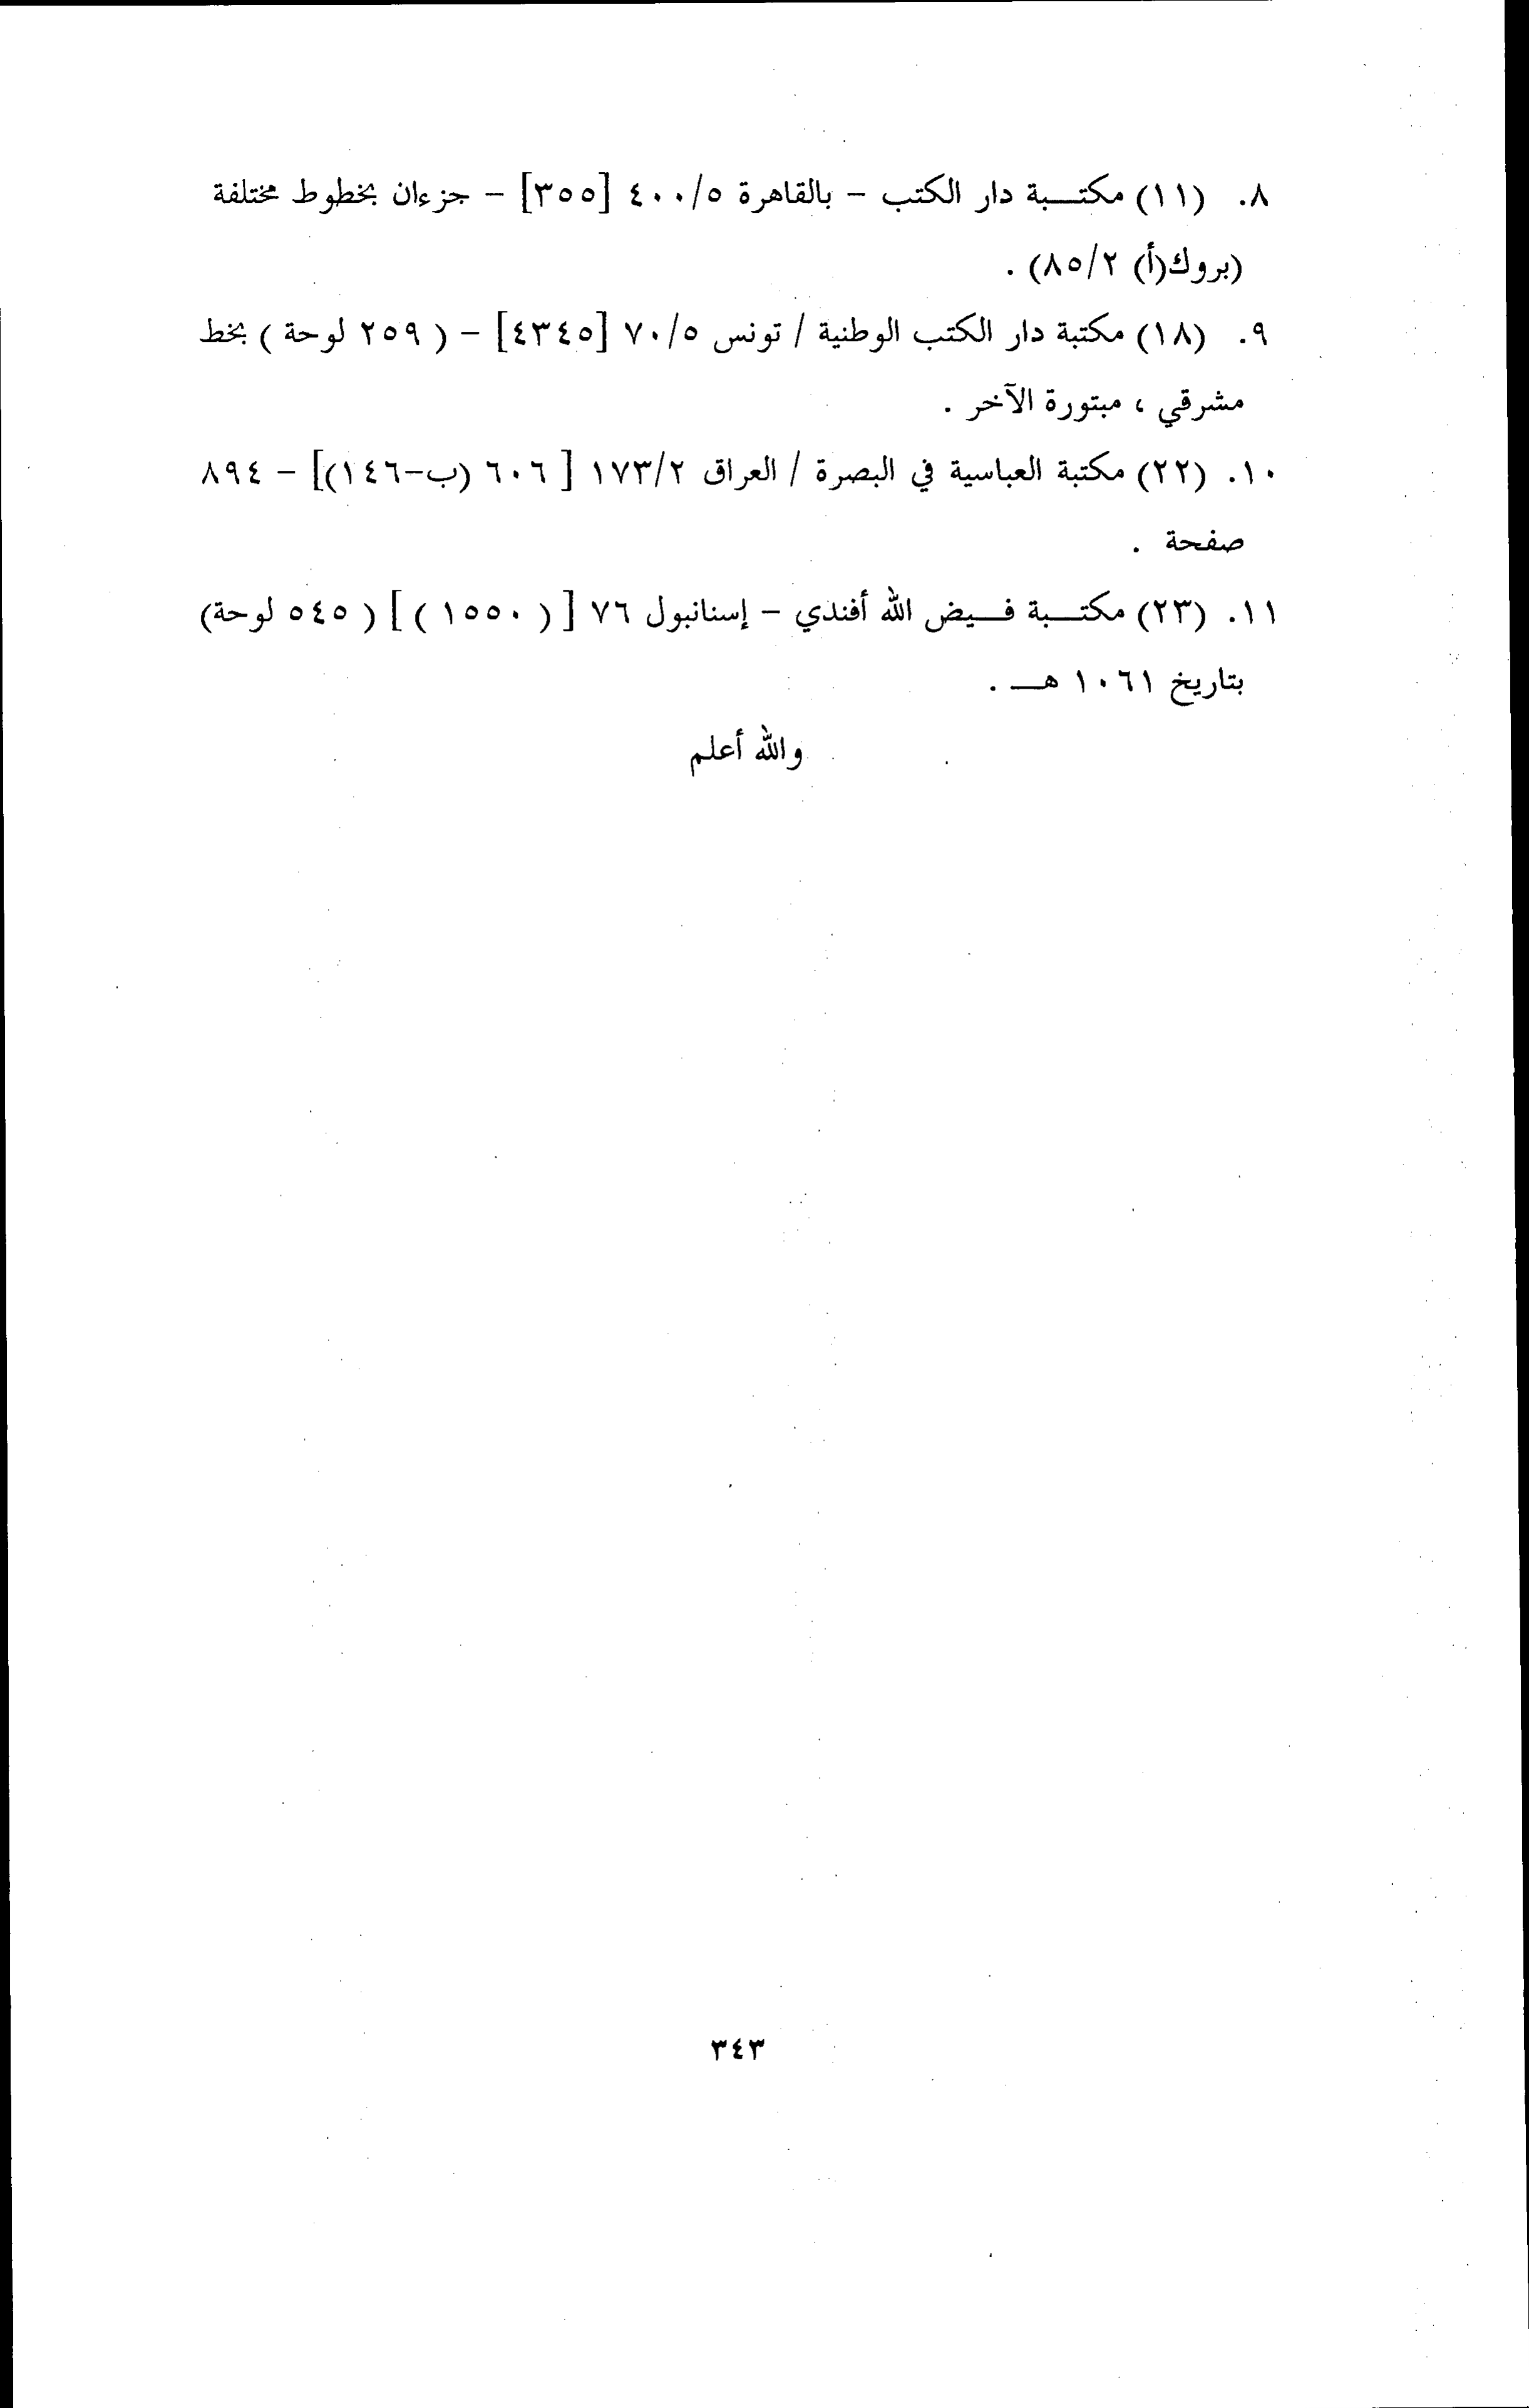 ٨. (١١) مكتبة دار الكتب – بالقاهرة ٤٠٠/٥ [٣٥٥] – جزءان بخطوط مختلفة
(بروك(أ) ٨٥/٢) .
٩. (١٨) مكتبة دار الكتب الوطنية / تونس ٧٠/٥ [٤٣٤٥] – ( ٢٥٩ لوحة ) بخط
مشرقي ، مبتورة الآخر .
١٠. (٢٢) مكتبة العباسية في البصرة / العراق ١٧٣/٢ [ ٦٠٦ (ب-١٤٦)] – ٨٩٤
صفحة .
١١. (٢٣) مكتبة فيض الله أفندي – إسنانبول ٧٦ [ ( ١٥٥٠ ) ] ( ٥٤٥ لوحة)
بتاريخ ١٠٦١ هـ .
والله أعلم
٣٤٣